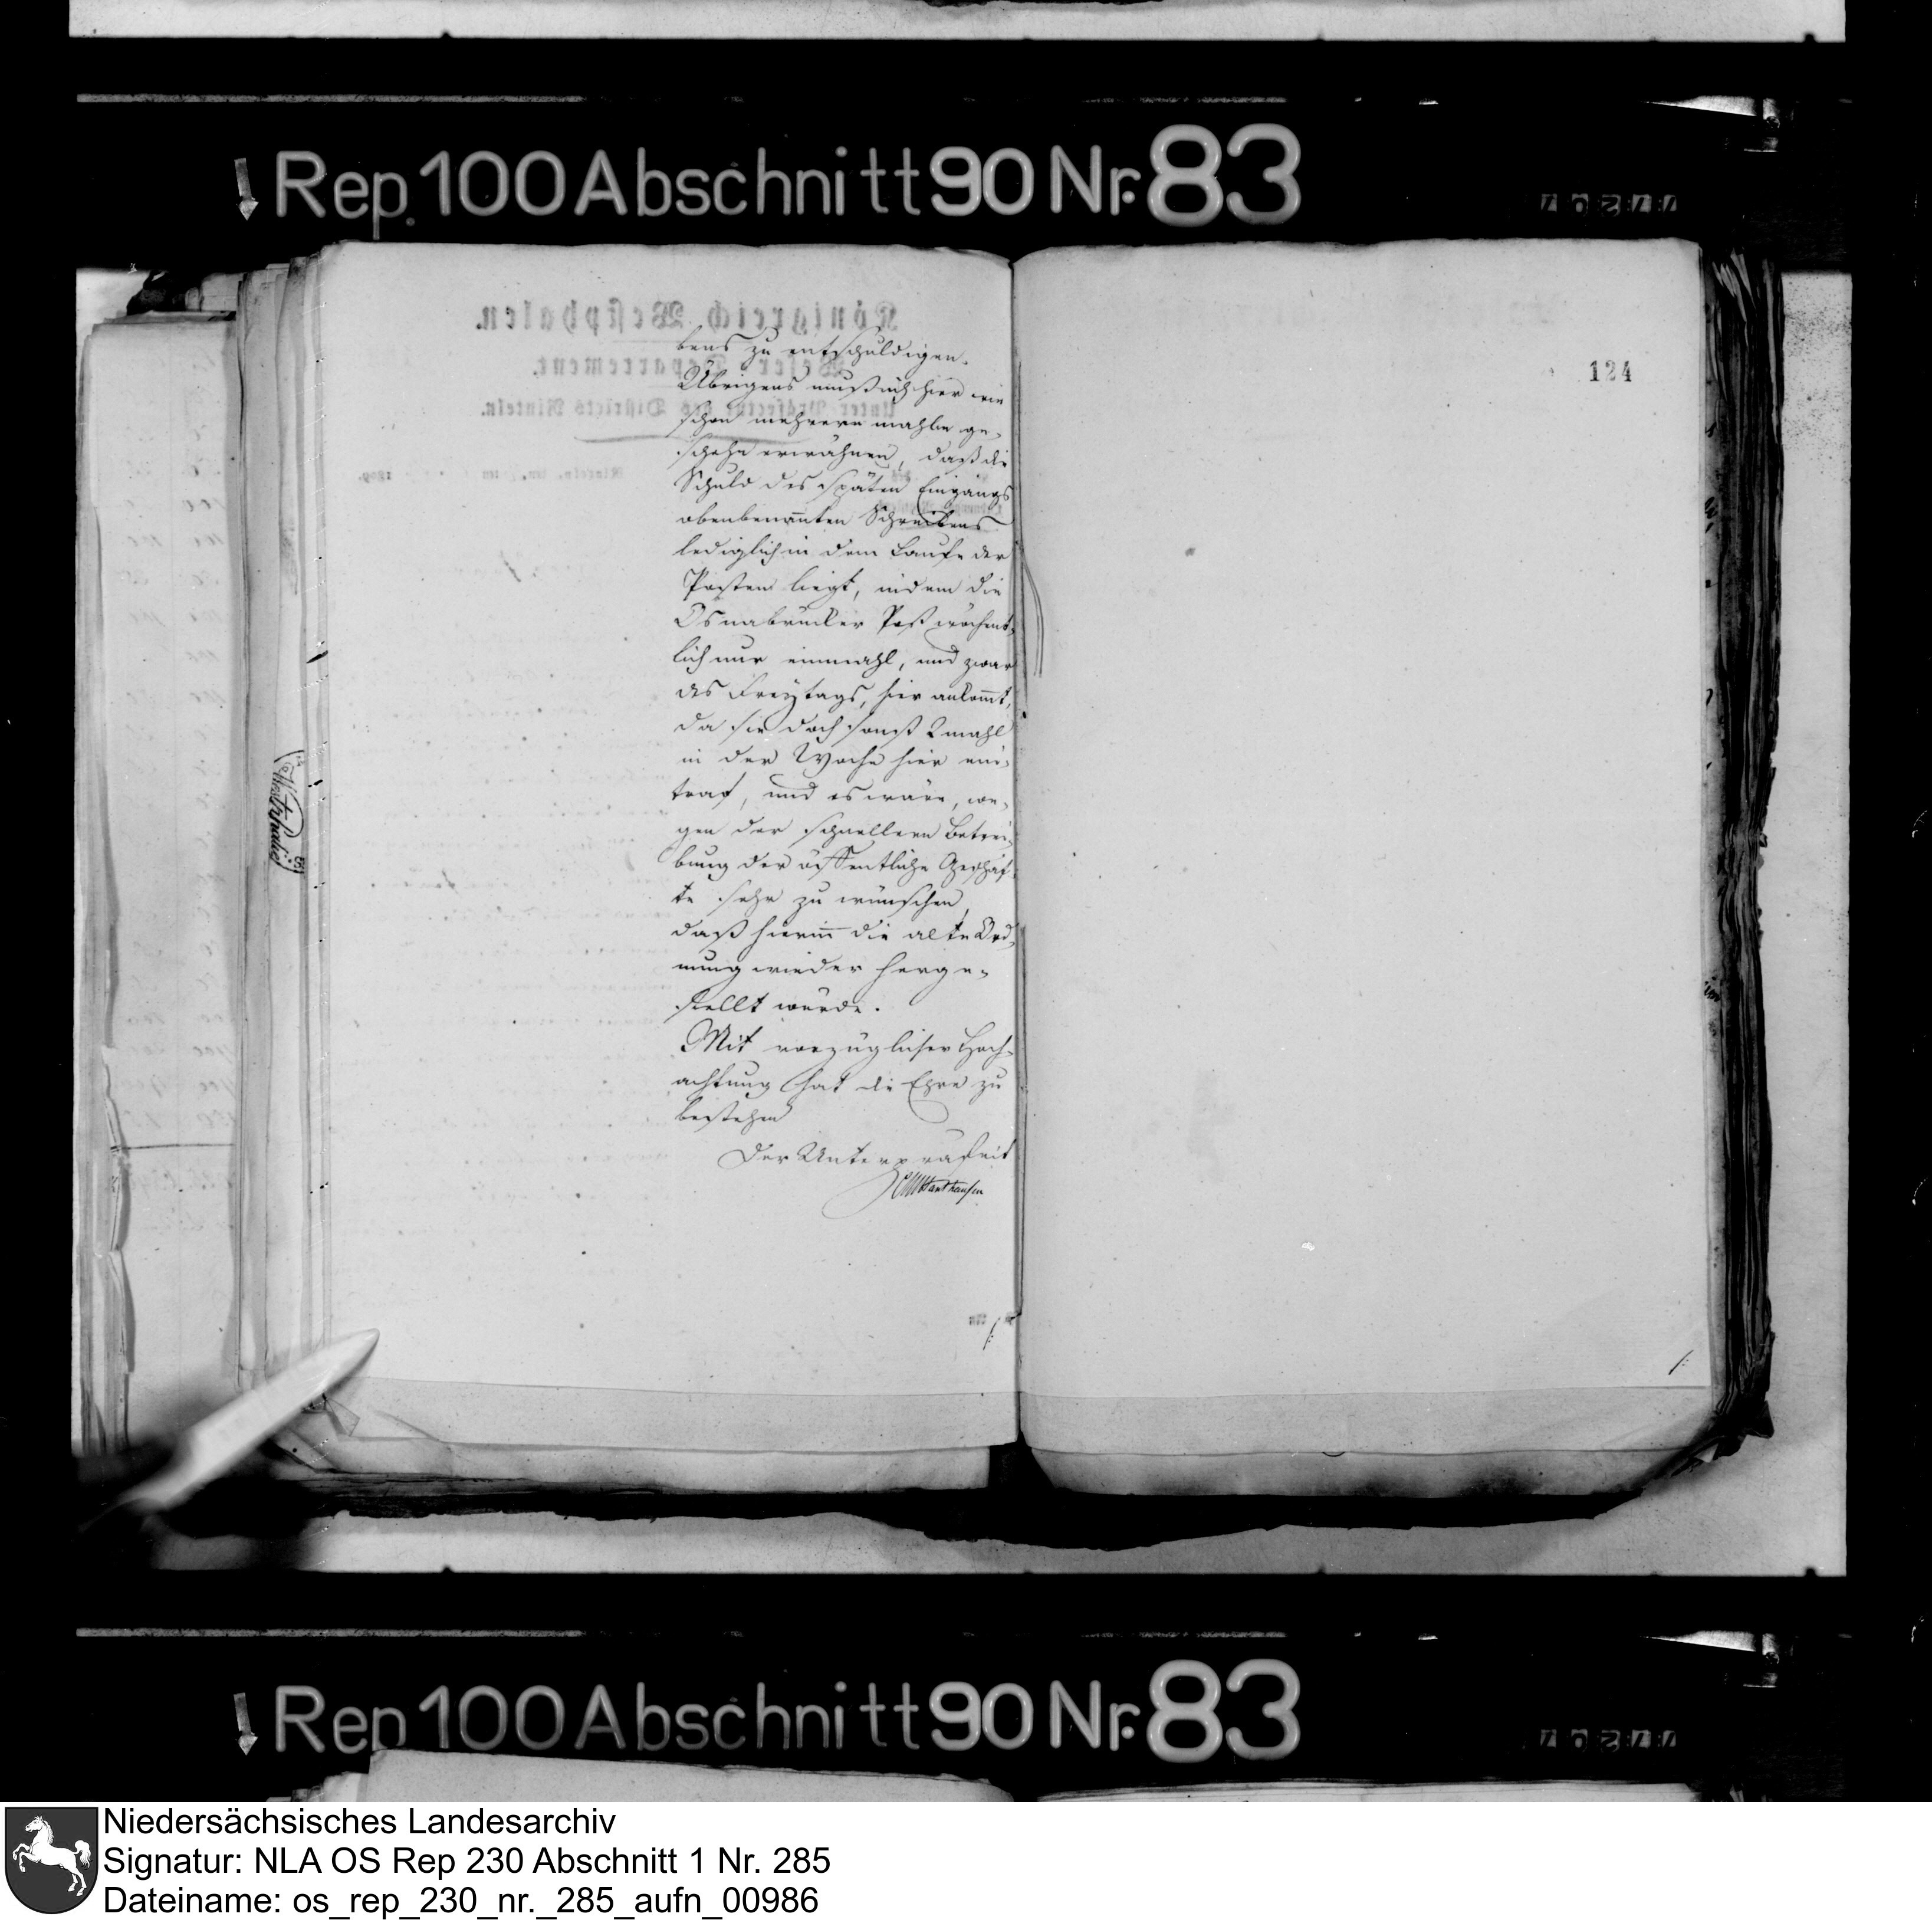 Rep. 100 Abschnitt 90 Nr. 83
bens zu entschuldigen.
Übrigens muß ich hier wie
schon mehrere mahle ge-
schehn erwähnen, daß die
Schuld des späten Eingangs
obenbenannten Schreibens
lediglich in dem Laufe der
Posten liegt, indem die
Osnabrücker Post wöchent-
lich nur einmahl, und zwar
des Freytags, hier ankommt,
da sie doch sonst 2mahl
in der Woche hier ein-
traf, und es wäre, we-
gen der schnellern Betrei-
bung der öffentliche Geschäf-
te sehr zu wünschen,
daß hierin die alte Ord-
nung wieder herge-
stellt würde.
Mit vorzüglicher Hoch-
achtung hat die Ehre zu
bestehen
Der Unterpräfect
124
Rep 100 Abschnitt 90 Nr. 83
Niedersächsisches Landesarchiv
Signatur: NLA OS Rep 230 Abschnitt 1 Nr. 285
Dateiname: os_rep_230_nr._285_aufn_00986